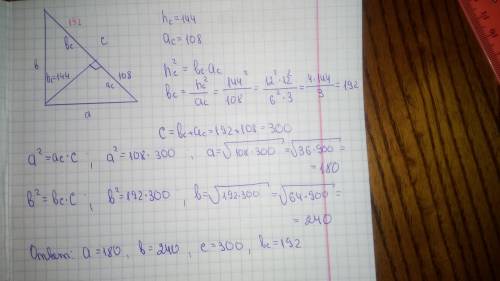 192
bc
c
b
bc=144
108
ac
a
hc=144
ac=108
hc²=bc·ac
bc=hc²/ac=144²/108=12²·12²/6²·3=4·144/3=192
c=bc+ac=192+108=300
a²=ac·c, a²=108·300, a=√108·300=√36·900=
=180
b²=bc·c; b²=192·300, b=√192·300=√64·900=
=240
Ответ: a=180, b=240, c=300, bc=192